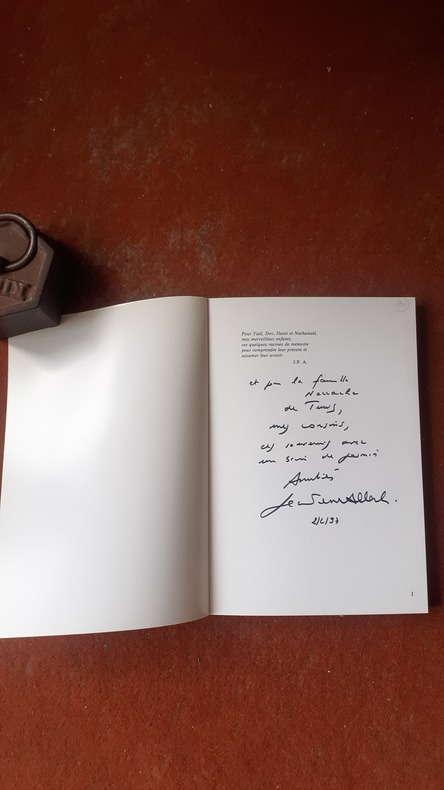 Pour Yaël, Dov, Ilane et Nathanaël,
mes merveilleux enfants,
ces quelques racines de mémoire
pour comprendre leur présent et
assumer leur avenir
J.P. A.
et pour la famille
Naccache
de Tunis,
mes cousins,
ces souvenirs avec
un brin de jasmin
Amitiés
1